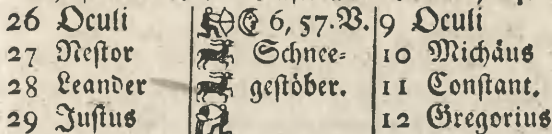 26 Oculi 6, 57. V. 9 Oculi
27 Nestor Schnee= 10 Michäus
28 Leander gestöber. 11 Constant.
29 Justus 12 Gregorius